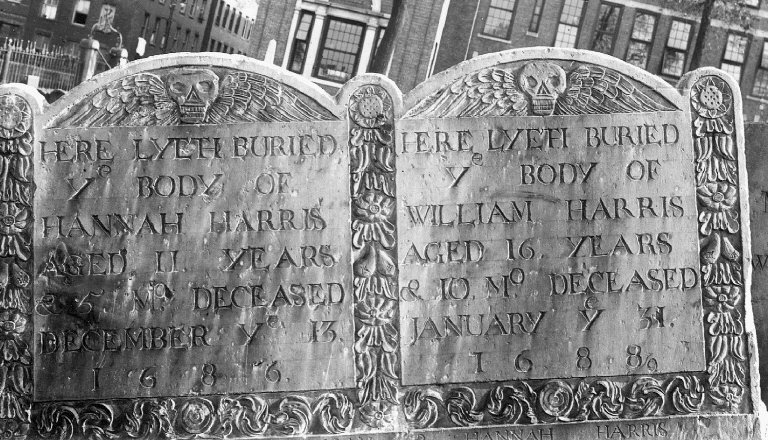 HERE LYETH BURIED
Yᵉ BODY OF
HANNAH HARRIS
AGED 11. YEARS
& 5. Mᵒ DECEASED
DECEMBER Yᵉ 13.
1 6 8 6.
HERE LYETH BURIED
Yᵉ BODY OF
WILLIAM HARRIS
AGED 16. YEARS
& 10. Mᵒ DECEASED
JANUARY Yᵉ 31.
1 6 8 8
HANNAH HARRIS